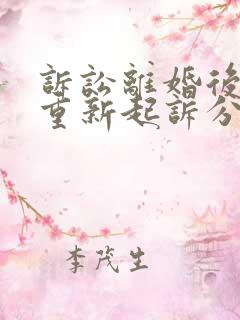 訴訟離婚後
重新起訴分
李茂生